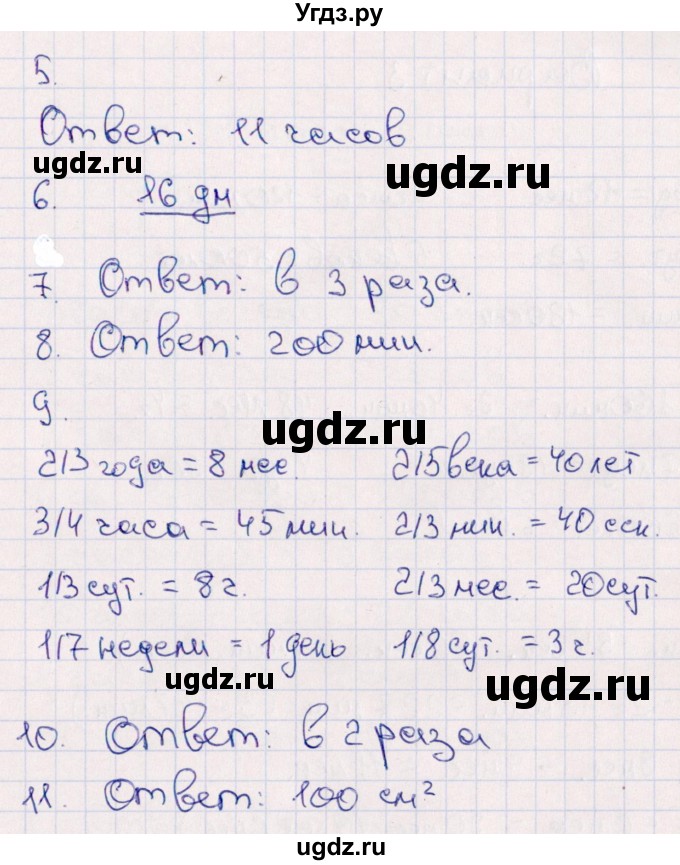 Угдз.ру
5.
Ответ: 11 часов
ugdz.ru ugdz.ru
6. 16 дм
7. Ответ: в 3 раза.
8. Ответ: 200 мин.
ugdz.ru
9.
2/3 года = 8 мес. 2/5 века = 40 лет
3/4 часа = 45 мин. 2/3 мин. = 40 сек.
1/3 сут. = 8 ч. 2/3 мес. = 20 сут.
1/7 недели = 1 день 1/8 сут. = 3 ч.
ugdz.ru ugdz.ru
10. Ответ: в 2 раза
11. Ответ: 100 см²
ugdz.ru